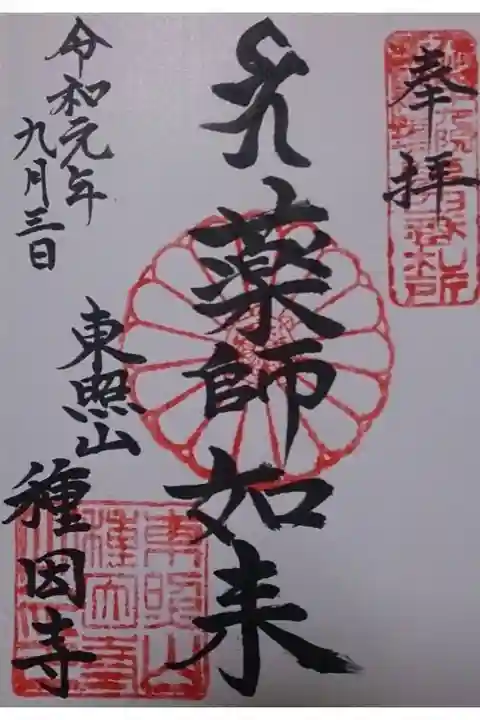 奉拝
薬師如来
東照山
種因寺
令和元年
九月三日
東照山